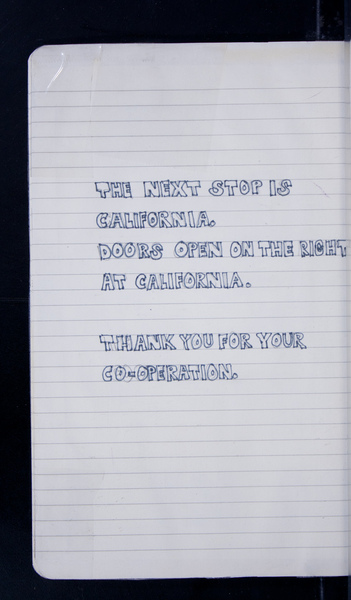 THE NEXT STOP IS
CALIFORNIA.
DOORS OPEN ON THE RIGHT
AT CALIFORNIA.
THANK YOU FOR YOUR
CO-OPERATION.